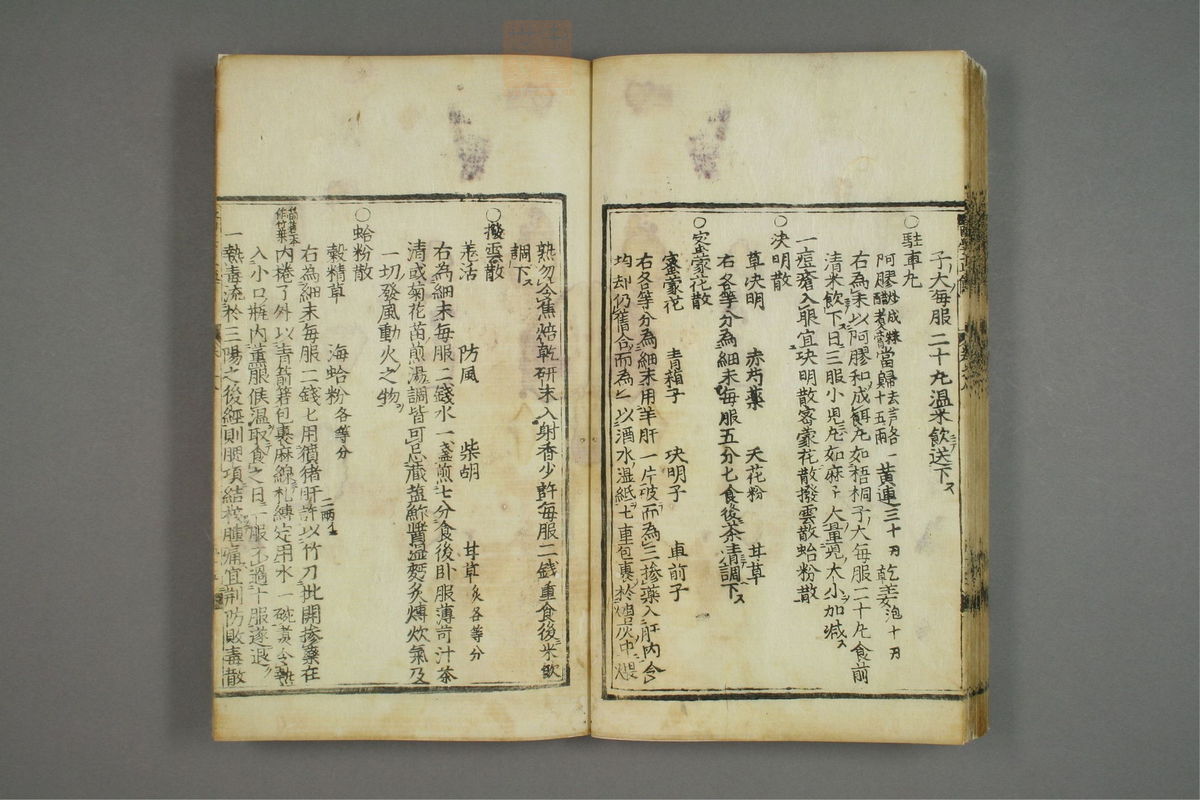 子大每服二十丸温米飲送下ス
○駐車丸
阿膠 當歸去芦各十五兩 黄連三十刃 乾姜泡十刃
右為末以阿膠和成餌丸如梧桐子大每服二十丸食前
清米飲下日三服小児丸如麻子大量児大小加減ス
一痘瘡入眼宜決明散密蒙花散撥雲散蛤粉散
○决明散
草决明 赤芍藥 天花粉 甘草
右各等分為細末每服五分七食後茶清調下ス
○密蒙花散
密蒙花 青葙子 决明子 車前子
右各等分為細末用羊肝一片破而為三摻藥入肝内合
均却仍舊合而為一以酒水湿紙七重包裹於煻灰中煨
熟勿令焦焙乾研末入射香少許每服二錢重食後米飲
調下ス
○撥雲散
羗活 防風 柴胡 甘草炙各等分
右為細末每服二錢水一盞煎七分食後卧服薄苛汁茶
清或菊花苗煎湯調皆可忌藏盐鮓醬湿麪炙煿炊氣及
一切發風動火之物
○蛤粉散
穀精草 海蛤粉各等分
右為細末每服二錢七用獖猪肝二兩許以竹刀批開摻藥在
内捲了外以青箭箬包裹麻線札縛定用水一碗煑令熟
箭箬一本作竹葉
入小口瓶内薰眼候温取食之日一服不過十服遂退
一熱毒流於三陽之後經則腮項結核腫痛宜荆防敗毒散